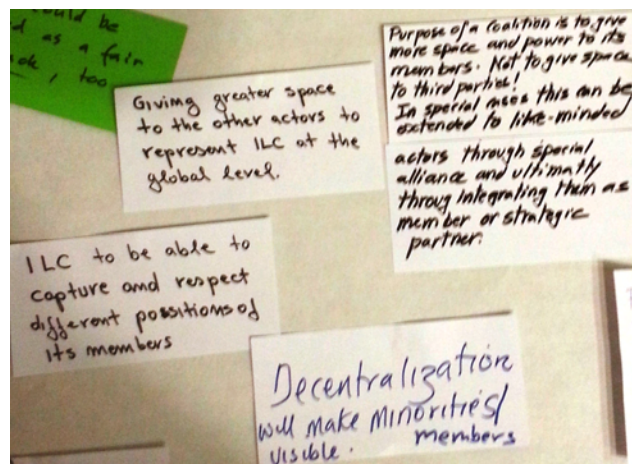 could be
as a fair
, too
Giving greater space
to the other actors to
represent ILC at the
global level.
Purpose of a Coalition is to give
more space and power to its
members. Not to give space
to third parties!
In special cases this can be
extended to like-minded
actors through special
alliance and ultimatly
throug integrating them as
member or strategic
partner.
ILC to be able to
capture and respect
different possitions of
its members
Decentralization
will make minorities/
members
visible.